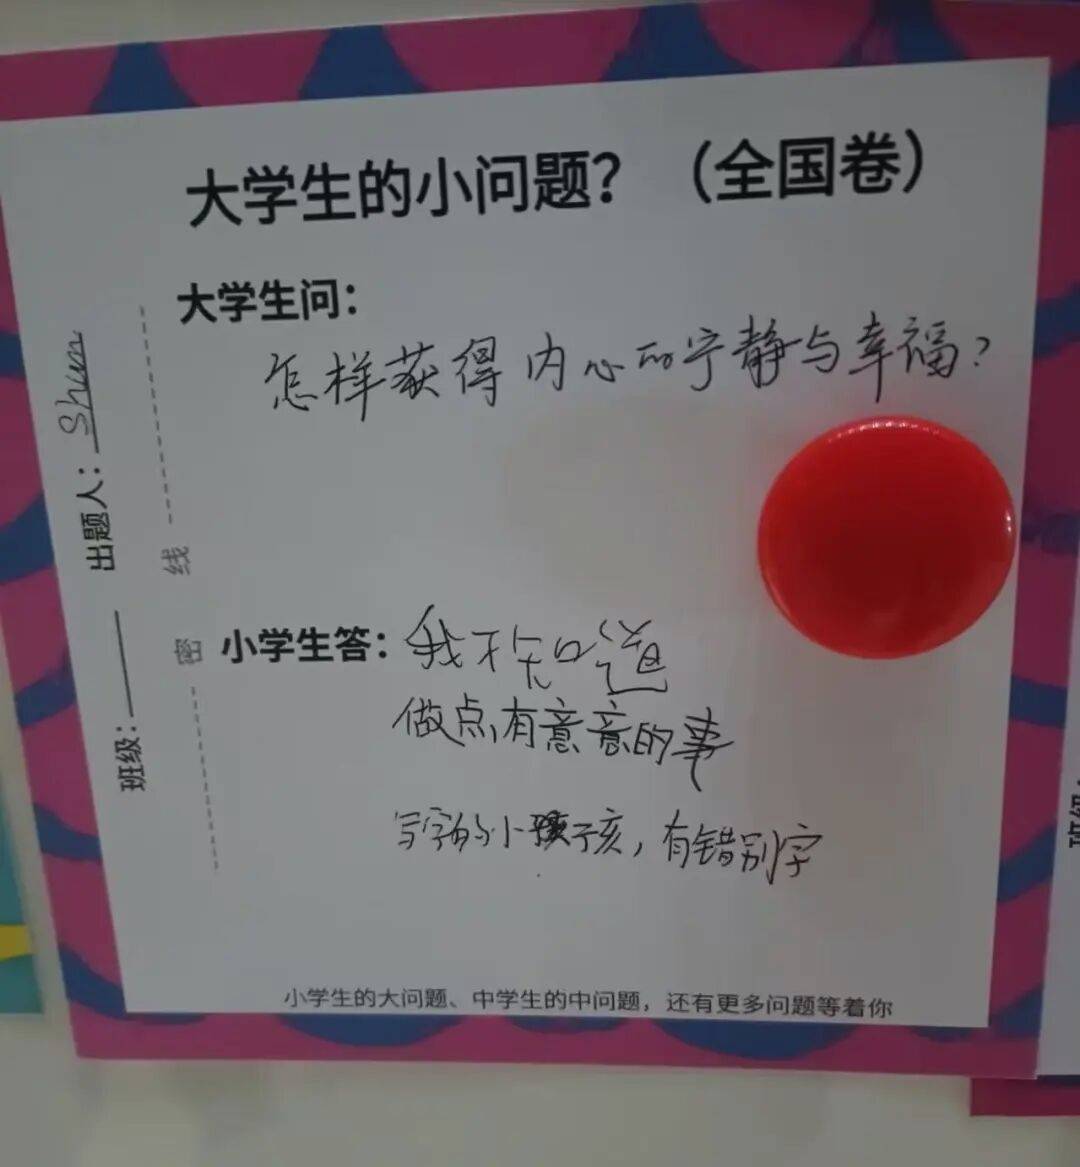 大学生的小问题？（全国卷）
大学生问：
怎样获得内心的宁静与幸福？
出题人：Shun
班级：
密 线
小学生答：我不知道
做点有意意的事
写字的小孩子亥，有错别字
小学生的大问题、中学生的中问题，还有更多问题等着你
班级：